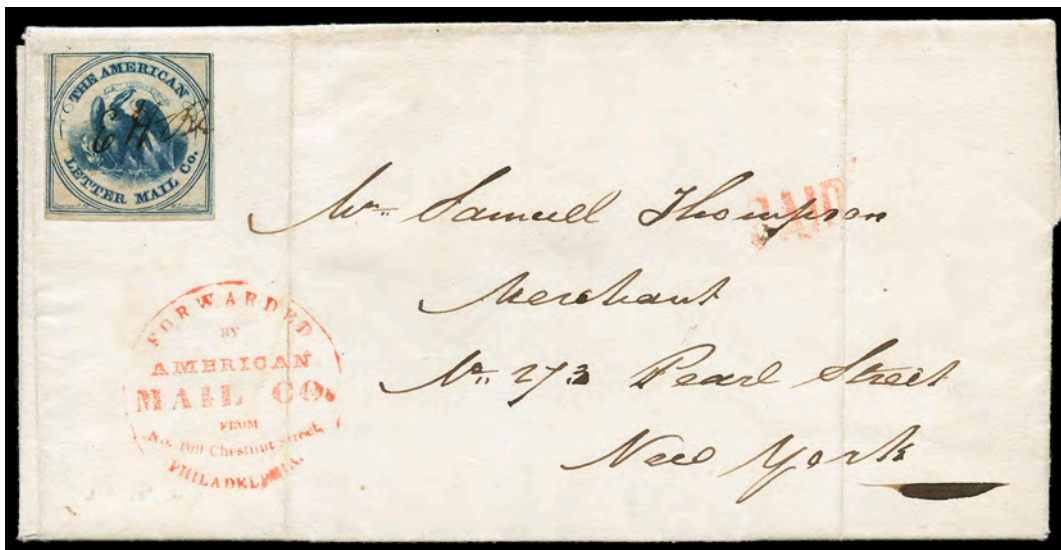 THE AMERICAN
LETTER MAIL Co.
PAID
Mr. Samuell Thompson
Merchant
No. 273 Pearl Street
New York
FORWARDED
BY
AMERICAN
MAIL CO.
FROM
No. 109 Chestnut Street,
PHILADELPHIA.